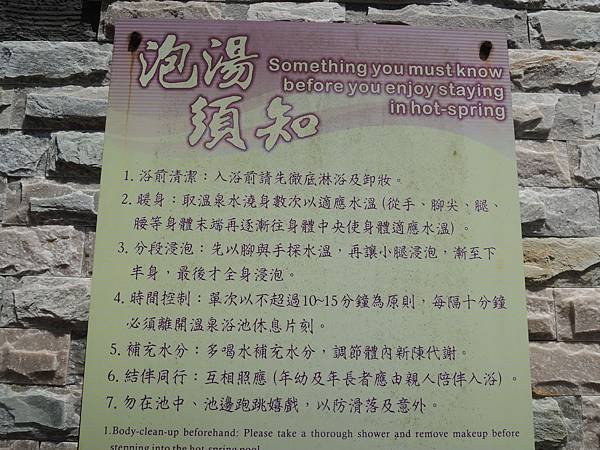 泡湯
須知
Something you must know
before you enjoy staying
in hot-spring
1. 浴前清潔：入浴前請先徹底淋浴及卸妝。
2. 暖身：取溫泉水澆身數次以適應水溫 (從手、腳尖、腿、
腰等身體末端再逐漸往身體中央使身體適應水溫) 。
3. 分段浸泡：先以腳與手探水溫，再讓小腿浸泡，漸至下
半身，最後才全身浸泡。
4. 時間控制：單次以不超過10~15分鐘為原則，每隔十分鐘
必須離開溫泉浴池休息片刻。
5. 補充水分：多喝水補充水分，調節體內新陳代謝。
6. 結伴同行：互相照應 (年幼及年長者應由親人陪伴入浴) 。
7. 勿在池中、池邊跑跳嬉戲，以防滑落及意外。
1.Body-clean-up beforehand: Please take a thorough shower and remove makeup before
stepping into the hot-spring pool.